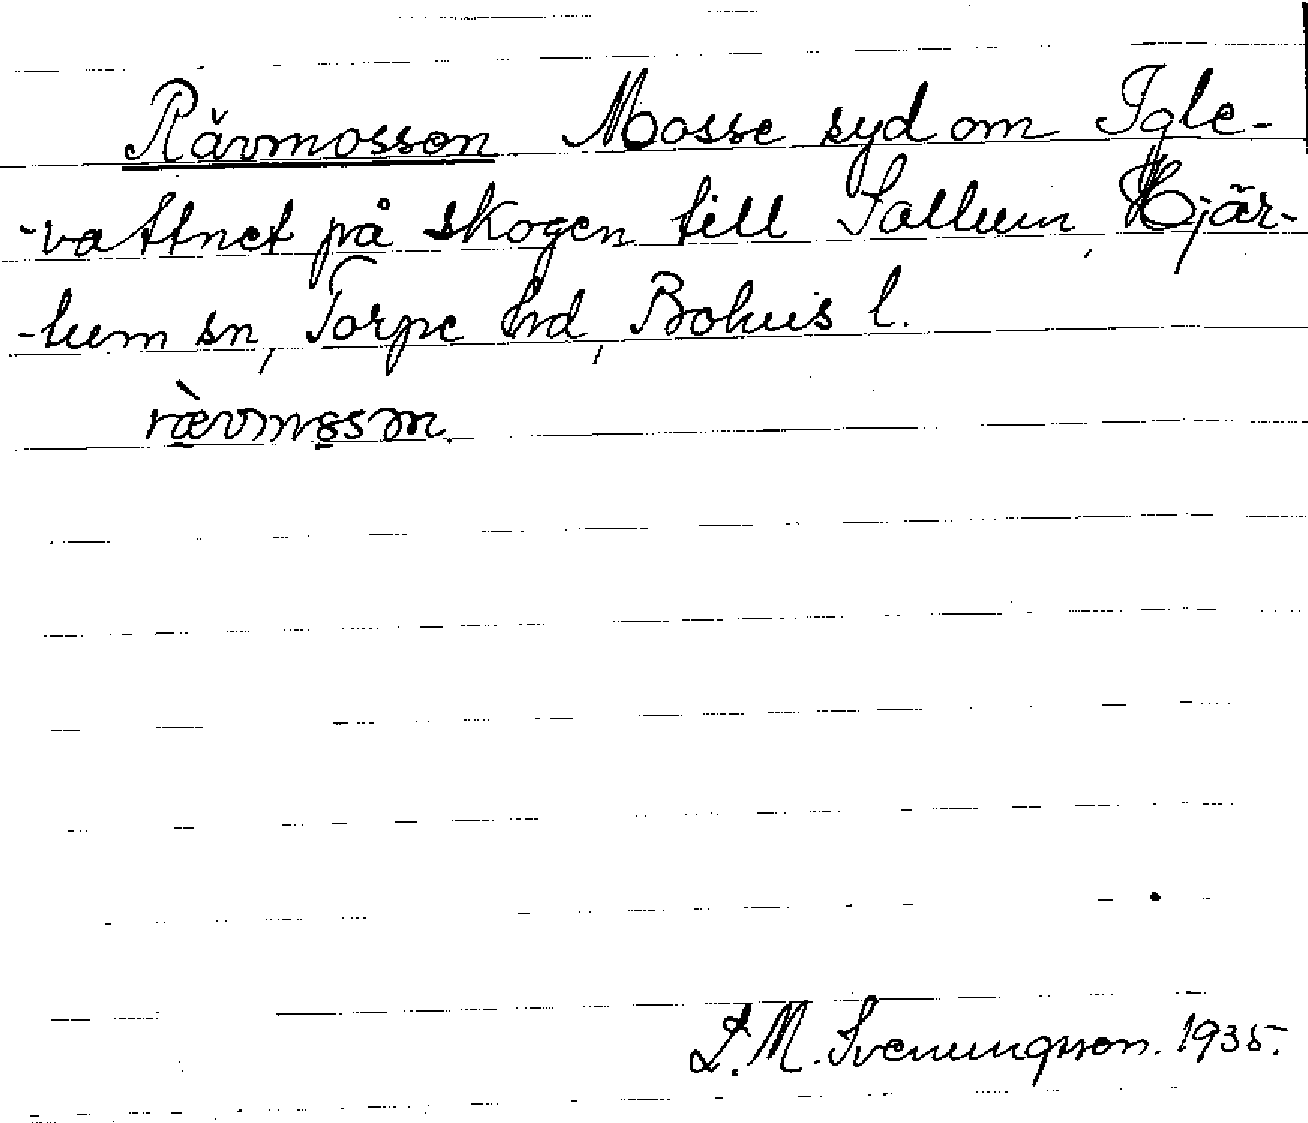 Rävmossen Mosse syd om Igle-
-vattnet på skogen till Sallum, Hjär-
-tum sn, Torpe hd, Bohus l.
rævmossən.
D. M. Svenungsson. 1935.